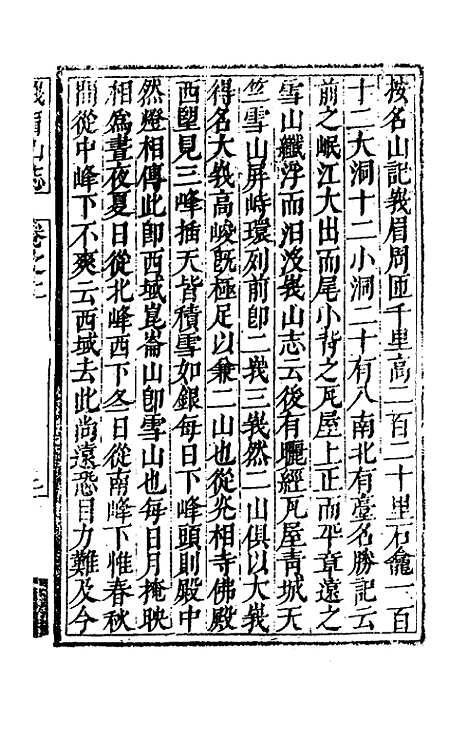 按名山記峩眉周匝千里高一百二十里石龕一百
十二大洞十二小洞二十有八南北有臺名勝記云
前之岷江大出而尾小背之瓦屋上正而平章遠之
雪山纖浮而汨没峩山志云後有曬經瓦屋青城天
竺雪山屏峙環列前即二峩三峩然二山俱以大峩
得名大峩高峻旣極足以兼二山也從光相寺佛殿
西望見三峰插天皆積雪如銀每日下峰頭則殿中
然燈相傳此即西域崑崙山即雪山也每日月掩映
相爲晝夜夏日從北峰西下冬日從南峰下惟春秋
間從中峰下不爽云西域去此尚遠恐目力難及今
峨眉山志 卷之二